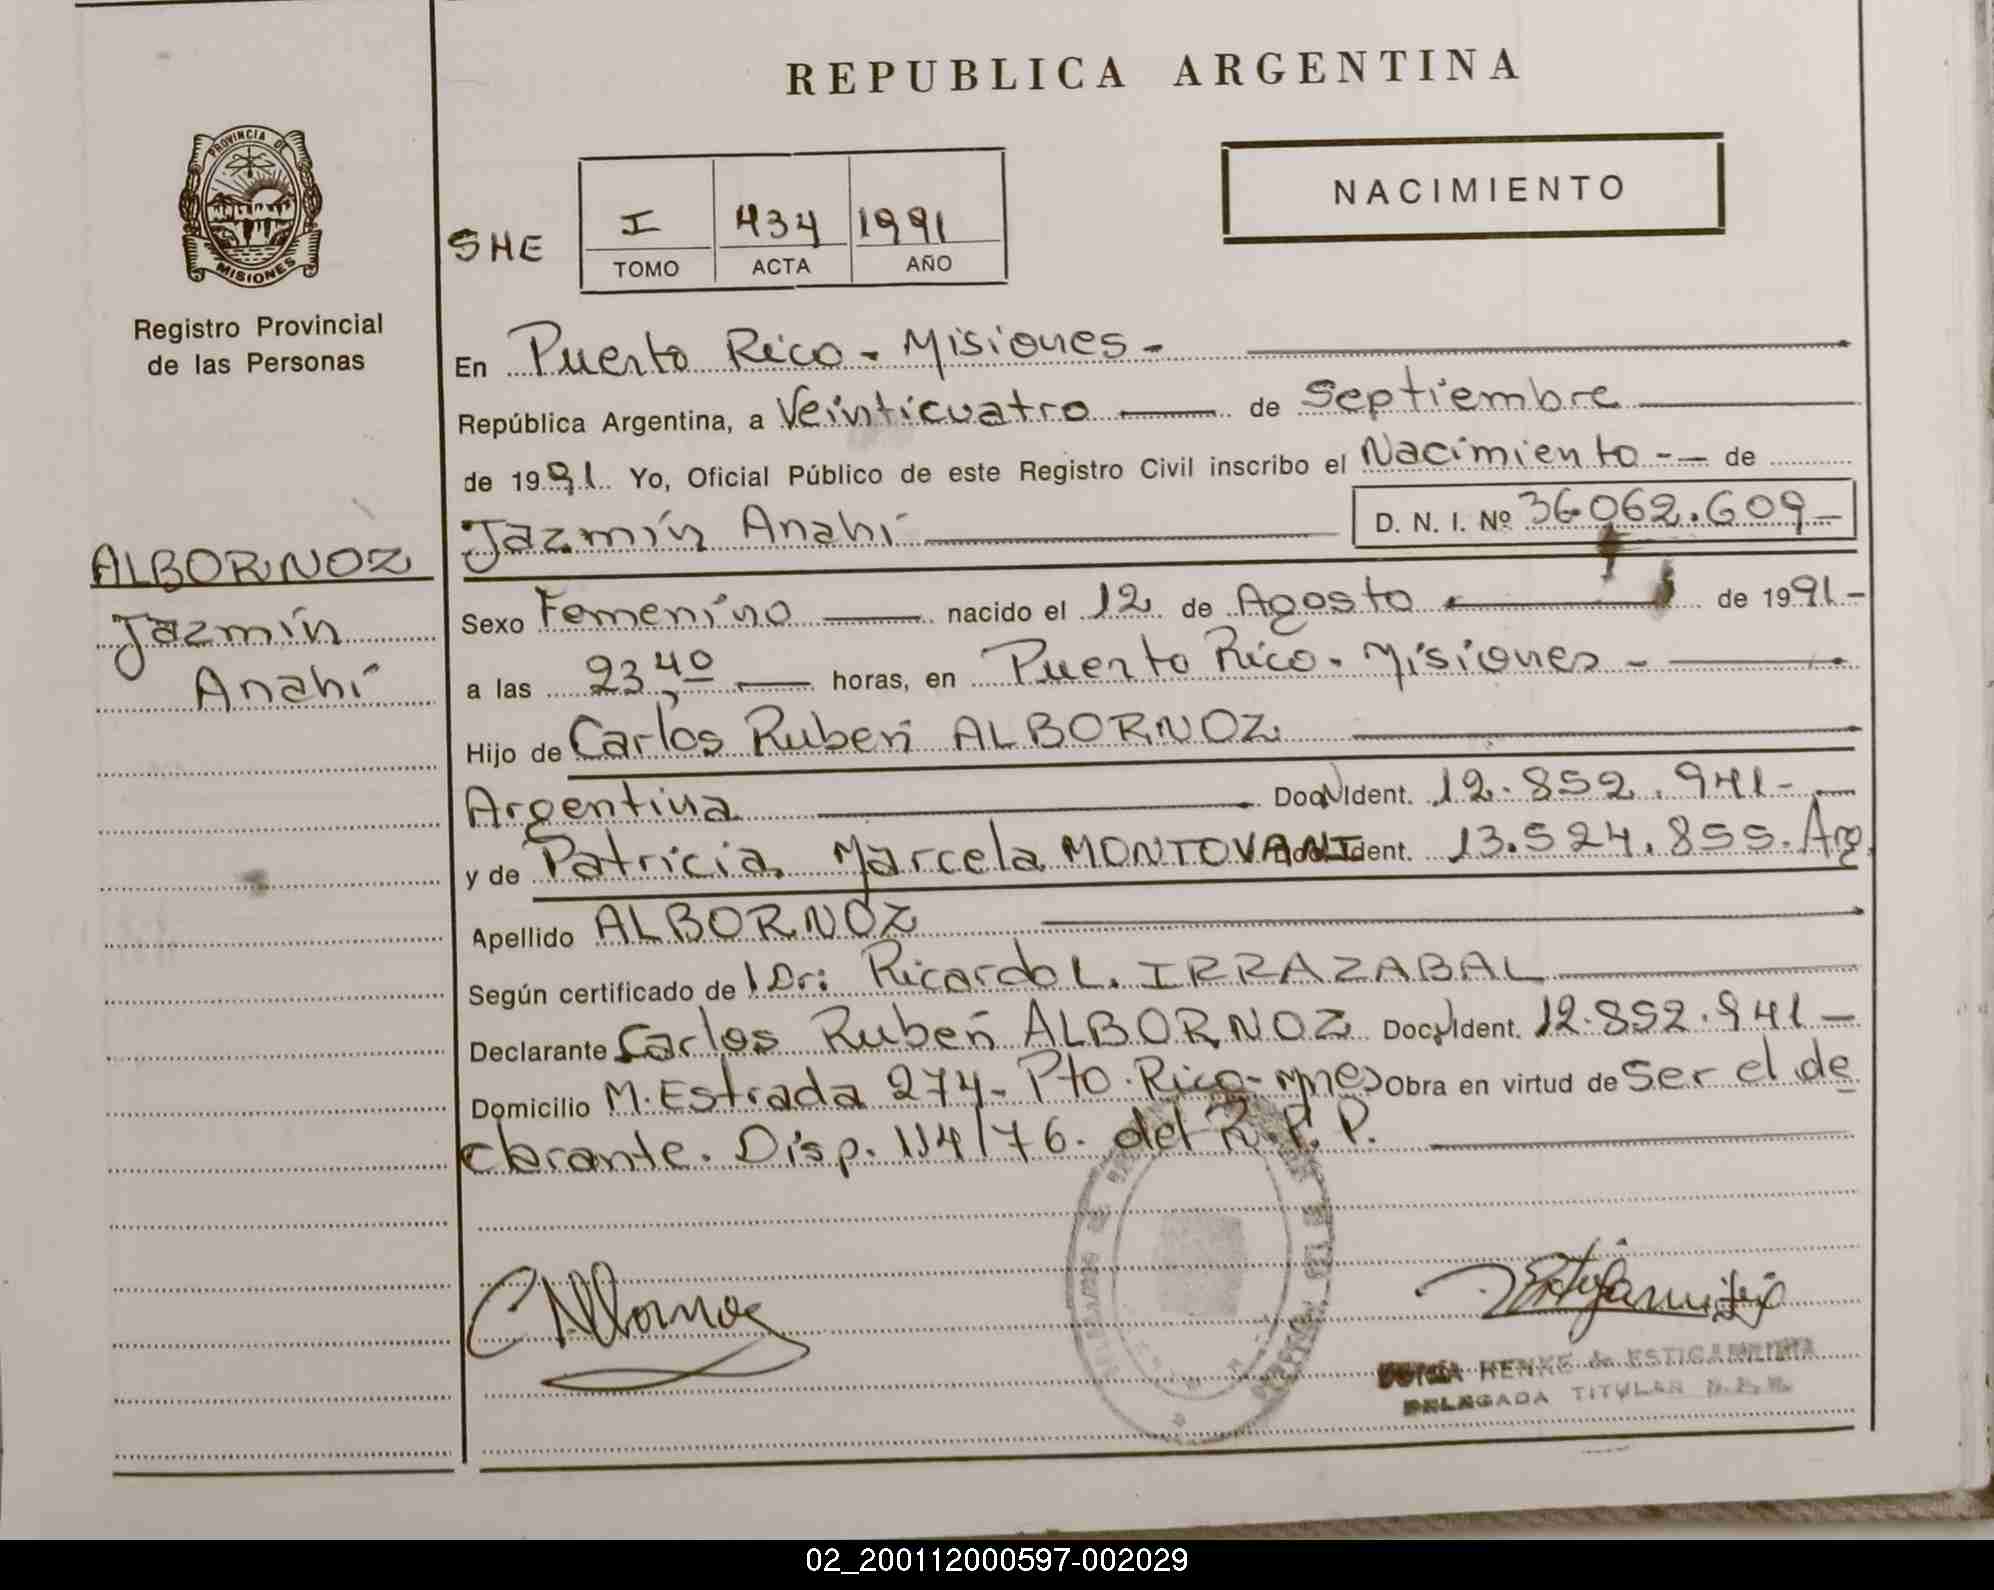 REPUBLICA ARGENTINA
PROVINCIA DE
MISIONES
Registro Provincial
de las Personas
NACIMIENTO
SHE
I 434 1991
TOMO ACTA AÑO
En Puerto Rico - Misiones -
República Argentina, a Veinticuatro de Septiembre
de 1991 Yo, Oficial Público de este Registro Civil inscribo el Nacimiento -- de
Jazmín Anahí D. N. I. Nº 36.062.609-
ALBORNOZ
Jazmín
Anahí
Sexo Femenino nacido el 12 de Agosto de 1991-
a las 23,40 horas, en Puerto Rico - Misiones -
Hijo de Carlos Rubén ALBORNOZ
Argentina Doc. N Ident. 12.852.941-
y de Patricia Marcela MONTOVANI Doc. Ident. 13.524.855. Arg.
Apellido ALBORNOZ
Según certificado de l Dr: Ricardo L. IRRAZABAL
Declarante Carlos Rubén ALBORNOZ Doc. N Ident. 12.852.941-
Domicilio M. Estrada 274- Pto. Rico- Mnes Obra en virtud de Ser el de
clarante. Disp. 114/76. del R.P.P.
C Albornoz
HENKE de ESTIGARRIBIA
DELEGADA TITULAR
02_200112000597-002029